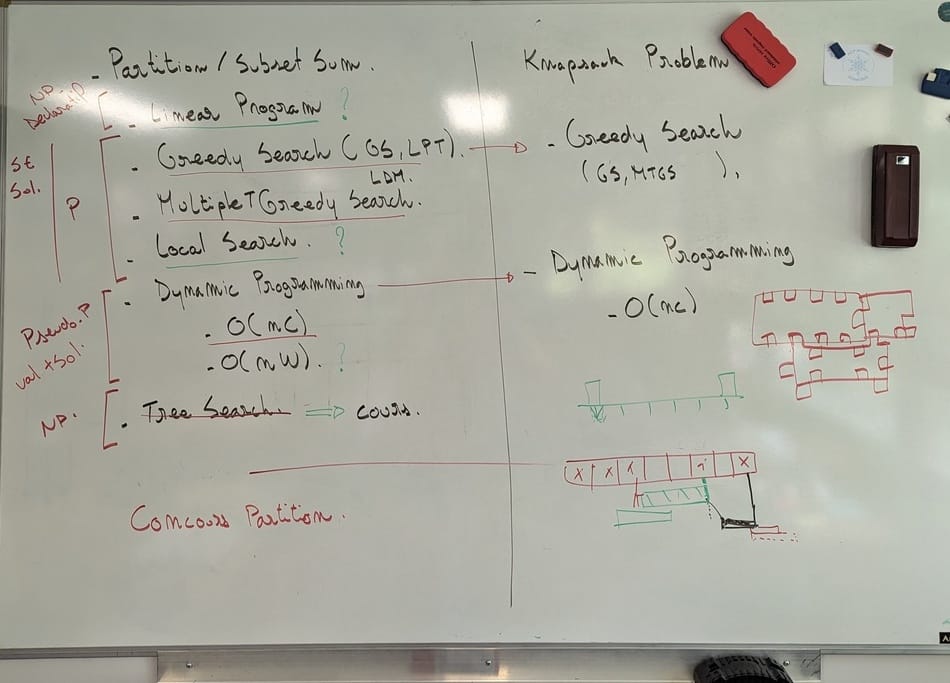 - Partition / Subset Sum.
NP
- Linear Program ?
- Greedy Search (GS, LPT).
LDM.
- MultipleTGreedy Search.
- Local Search. ?
- Dynamic Programming
- O(nC)
- O(nW). ?
- Tree Search. ⇒ cours.
St
Sol.
P
Pseudo.P
val + Sol.
NP.
Concours Partition.
Knapsack Problem
- Greedy Search
(GS, MTGS ).
- Dynamic Programming
- O(nC)
X X X X